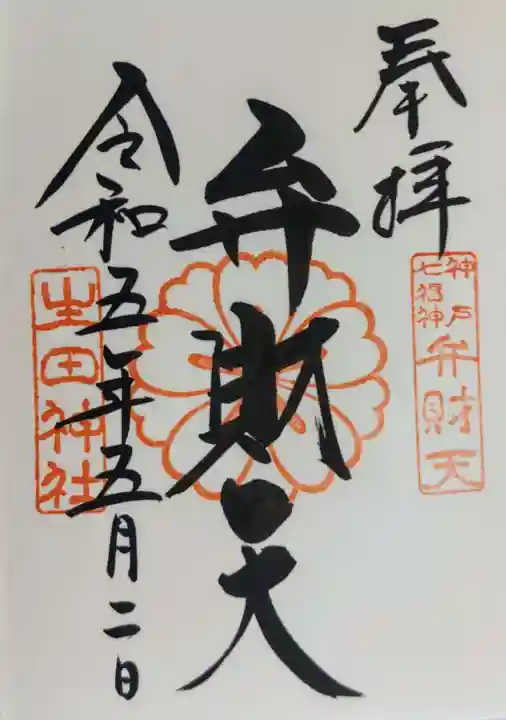 奉拝
神戸
七福神
弁財天
弁財天
令和五年五月二日
生田神社